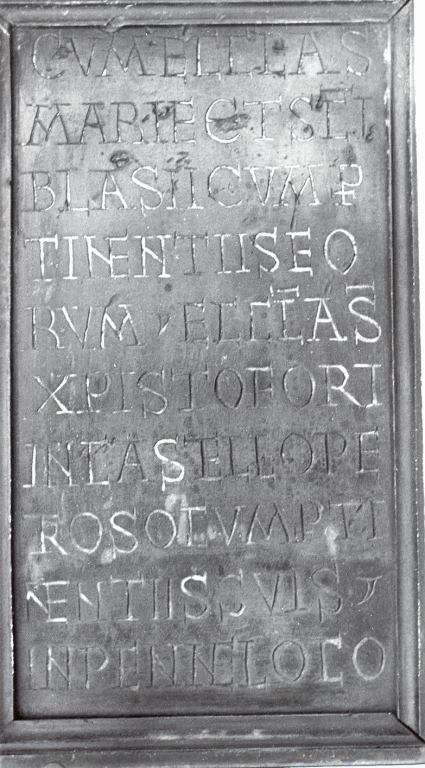 CVMECCLAS
MARIEETSCI
BLASIICVMP
TINENTIISEO
RVM ECCLAS
XPISTOFORI
INCASTELLOPE
TROSOCVMPTI
NENTIISSVIS
INPENNELOCO